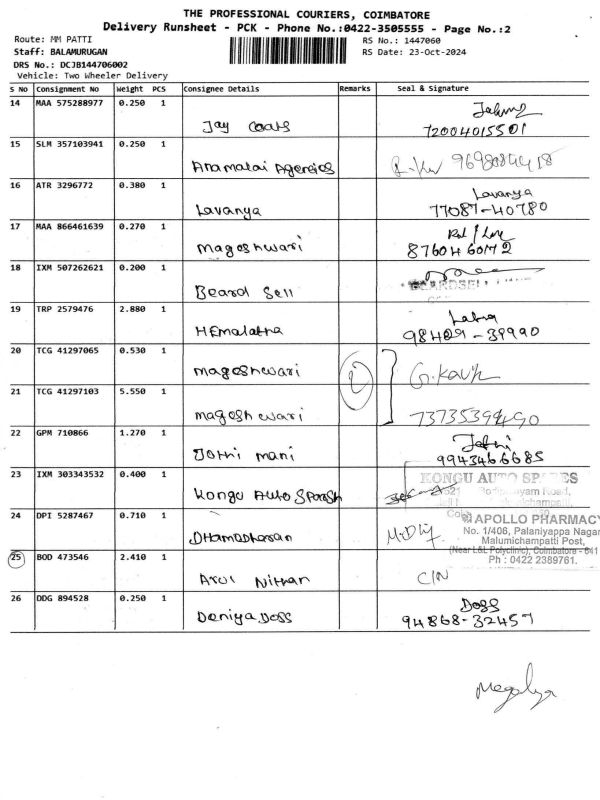 THE PROFESSIONAL COURIERS, COIMBATORE
Delivery Runsheet - PCK - Phone No.:0422-3505555 - Page No.:2
Route: MM PATTI
RS No.: 1447060
Staff: BALAMURUGAN
RS Date: 23-Oct-2024
DRS No.: DCJB144706002
Vehicle: Two Wheeler Delivery
S No Consignment No Weight PCS Consignee Details Remarks Seal & Signature
14 MAA 575288977 0.250 1
Jay Coats 72004015501
15 SLM 357103941 0.250 1
Anamalai Agencies
16 ATR 3296772 0.380 1 Lavanya
Lavanya 77087-40780
17 MAA 866461639 0.270 1
Mageshwari 8760460172
18 IXM 507262621 0.200 1
Beard Sell BEARDSELL
19 TRP 2579476 2.880 1 Latha
HEmalatha 98409-39990
20 TCG 41297065 0.530 1
mageshwari
21 TCG 41297103 5.550 1
mageshwari 7373539490
22 GPM 710866 1.270 1
Jothi mani 9943466685
23 IXM 303343532 0.400 1 KONGU AUTO SPARES
Kongu Auto Spares
24 DPI 5287467 0.710 1 APOLLO PHARMACY
No. 1/406, Palaniyappa Nagar
Malumichampatti Post,
(Near L&L Polyclinic), Coimbatore - 641
Ph : 0422 2389761.
25 BOD 473546 2.410 1
Arul Nithan
26 DDG 894528 0.250 1 Doss
Deniya Doss 94868-32457